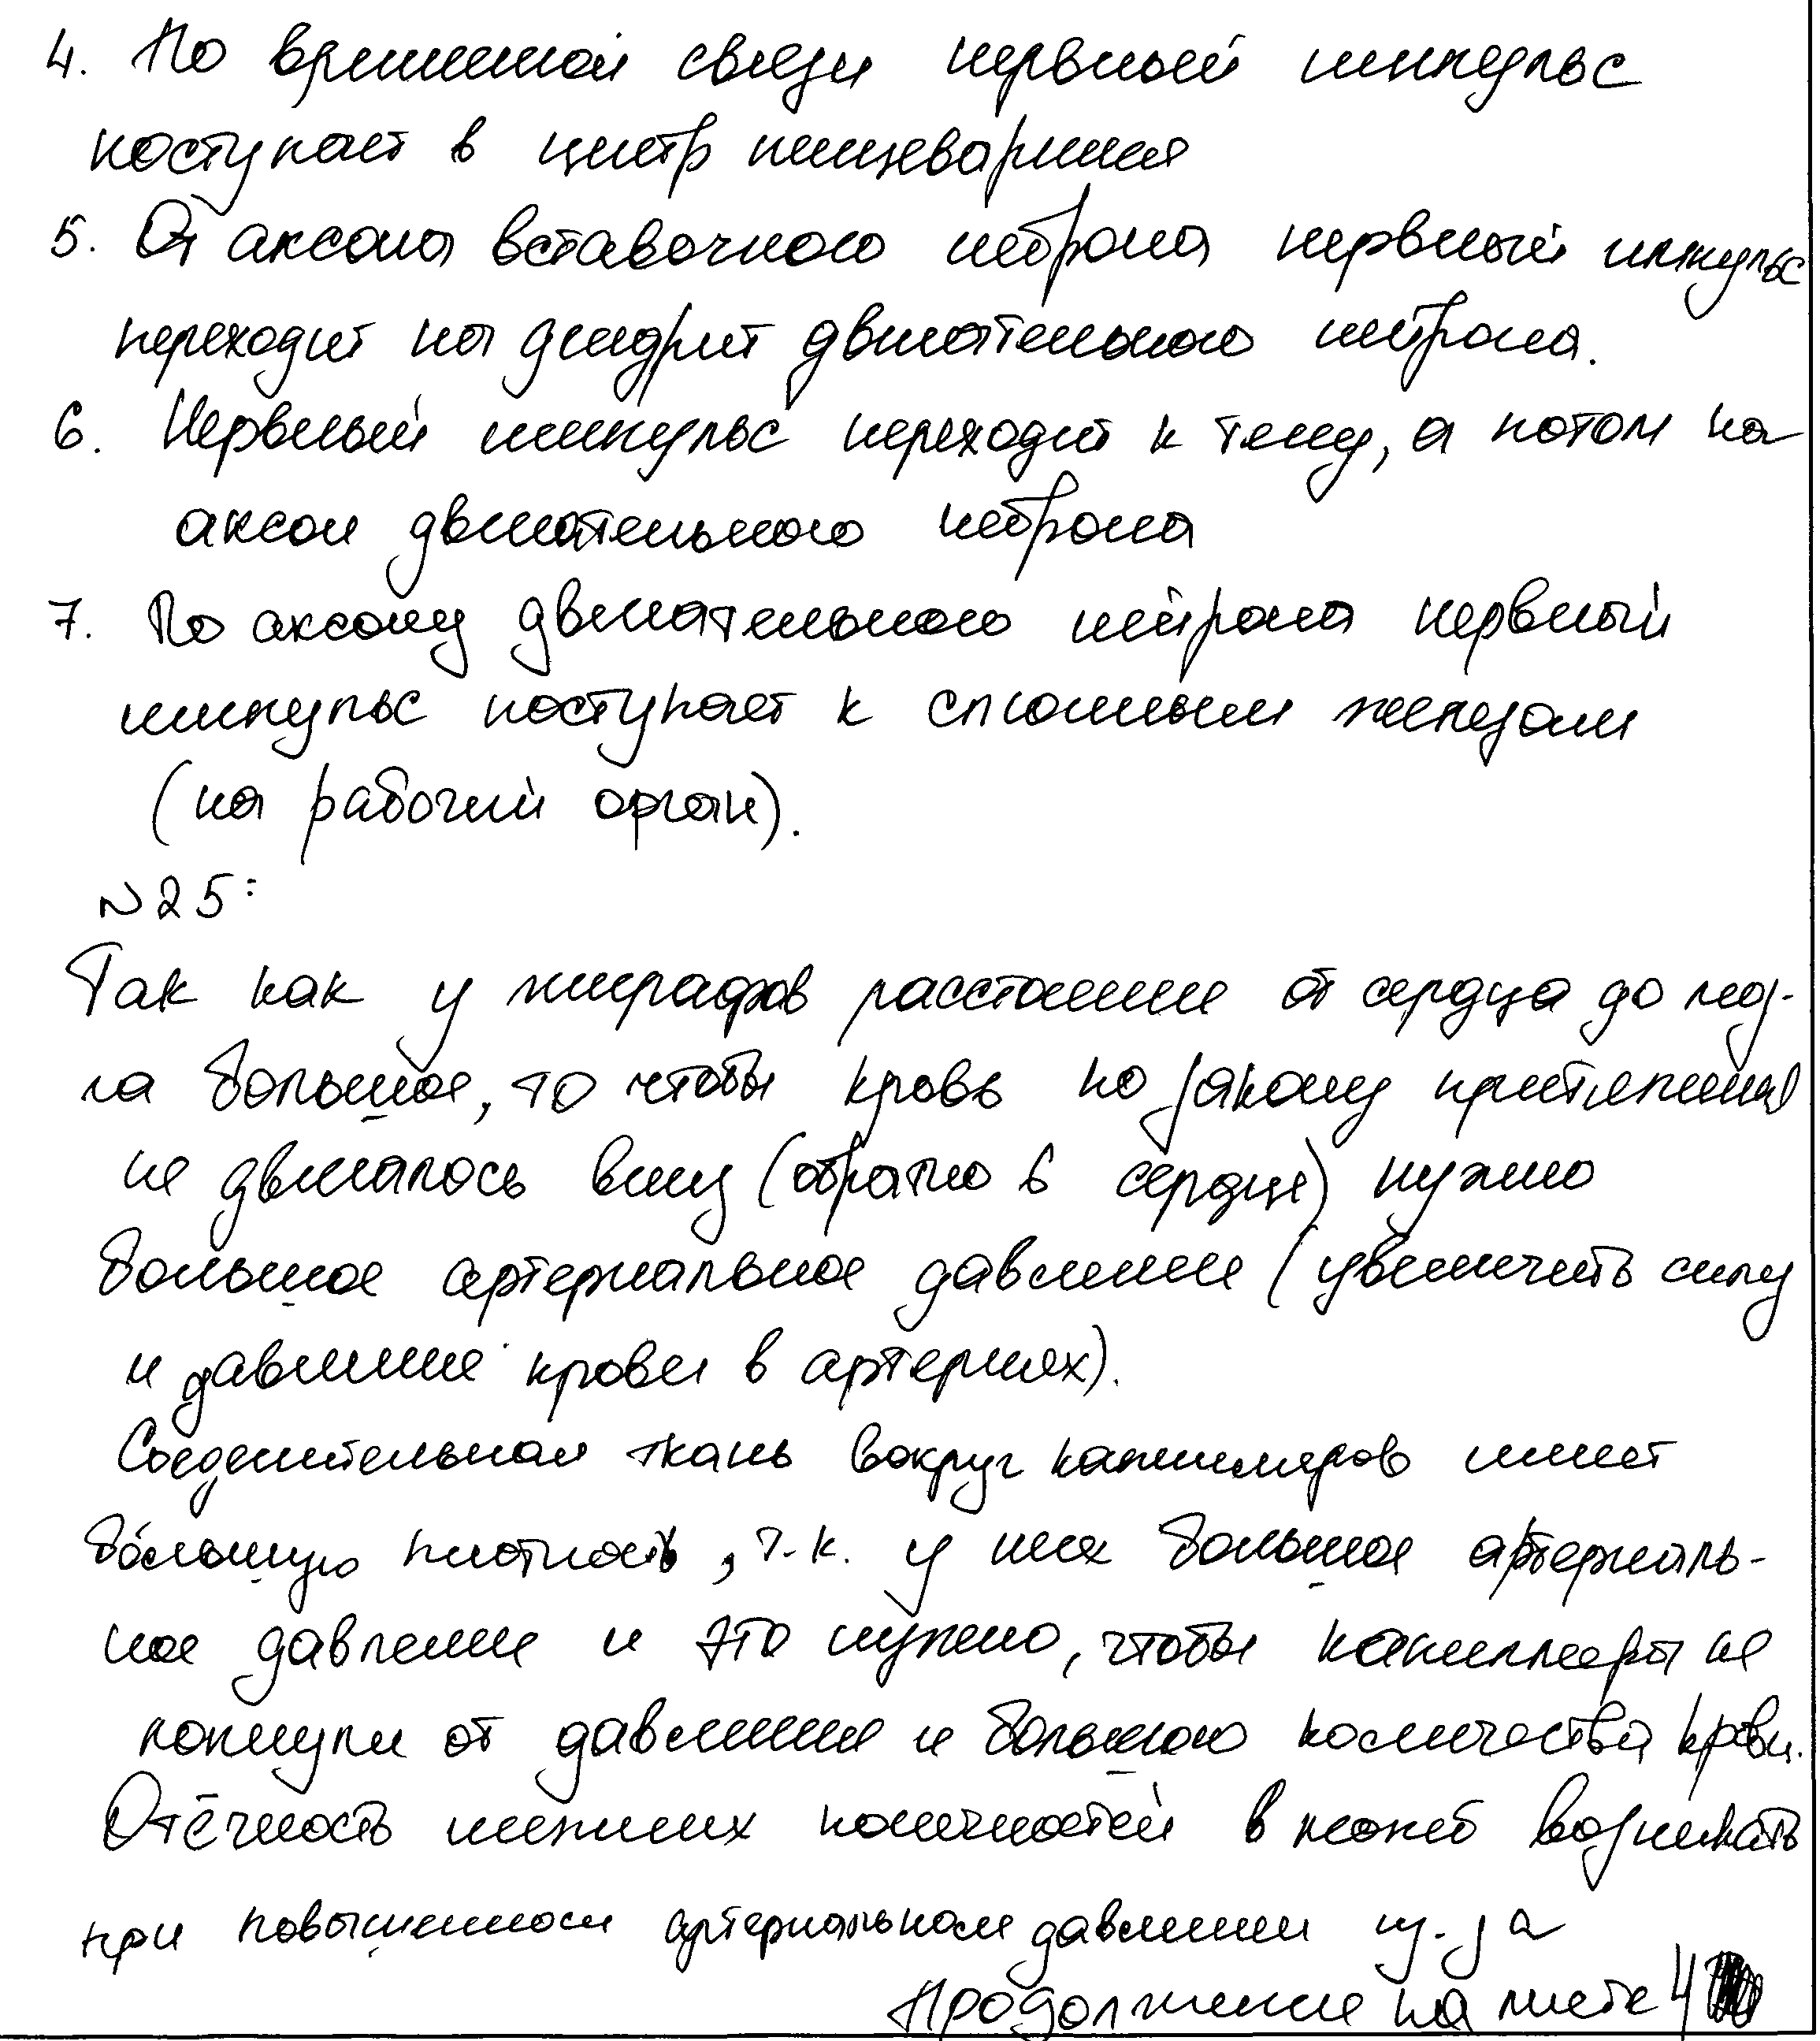 4. По временной связи нервный импульс
поступает в центр пищеварения
5. От аксона вставочного нейрона нервный импульс
переходит на дендрит двигательного нейрона.
6. Нервный импульс переходит к телу, а потом на
аксон двигательного нейрона
7. По аксону двигательного нейрона нервный
импульс поступает к слюнным железам
(на рабочий орган).
№25:
Так как у жирафов расстояние от сердца до моз-
га большое, то чтобы кровь по закону притяжения
не двигалось вниз (обратно в сердце) нужно
большое артериальное давление (увеличить силу
и давление крови в артериях).
Соеденительная ткань вокруг капилляров имеет
бо́льшую плотность, т.к. у них большое артериаль-
ное давление и это нужно, чтобы капилляры не
лопнули от давления и большого количества крови.
Отёчность нижних конечностей в может возникать
при повышенном артериальном давлении из-за
Продолжение на листе 4